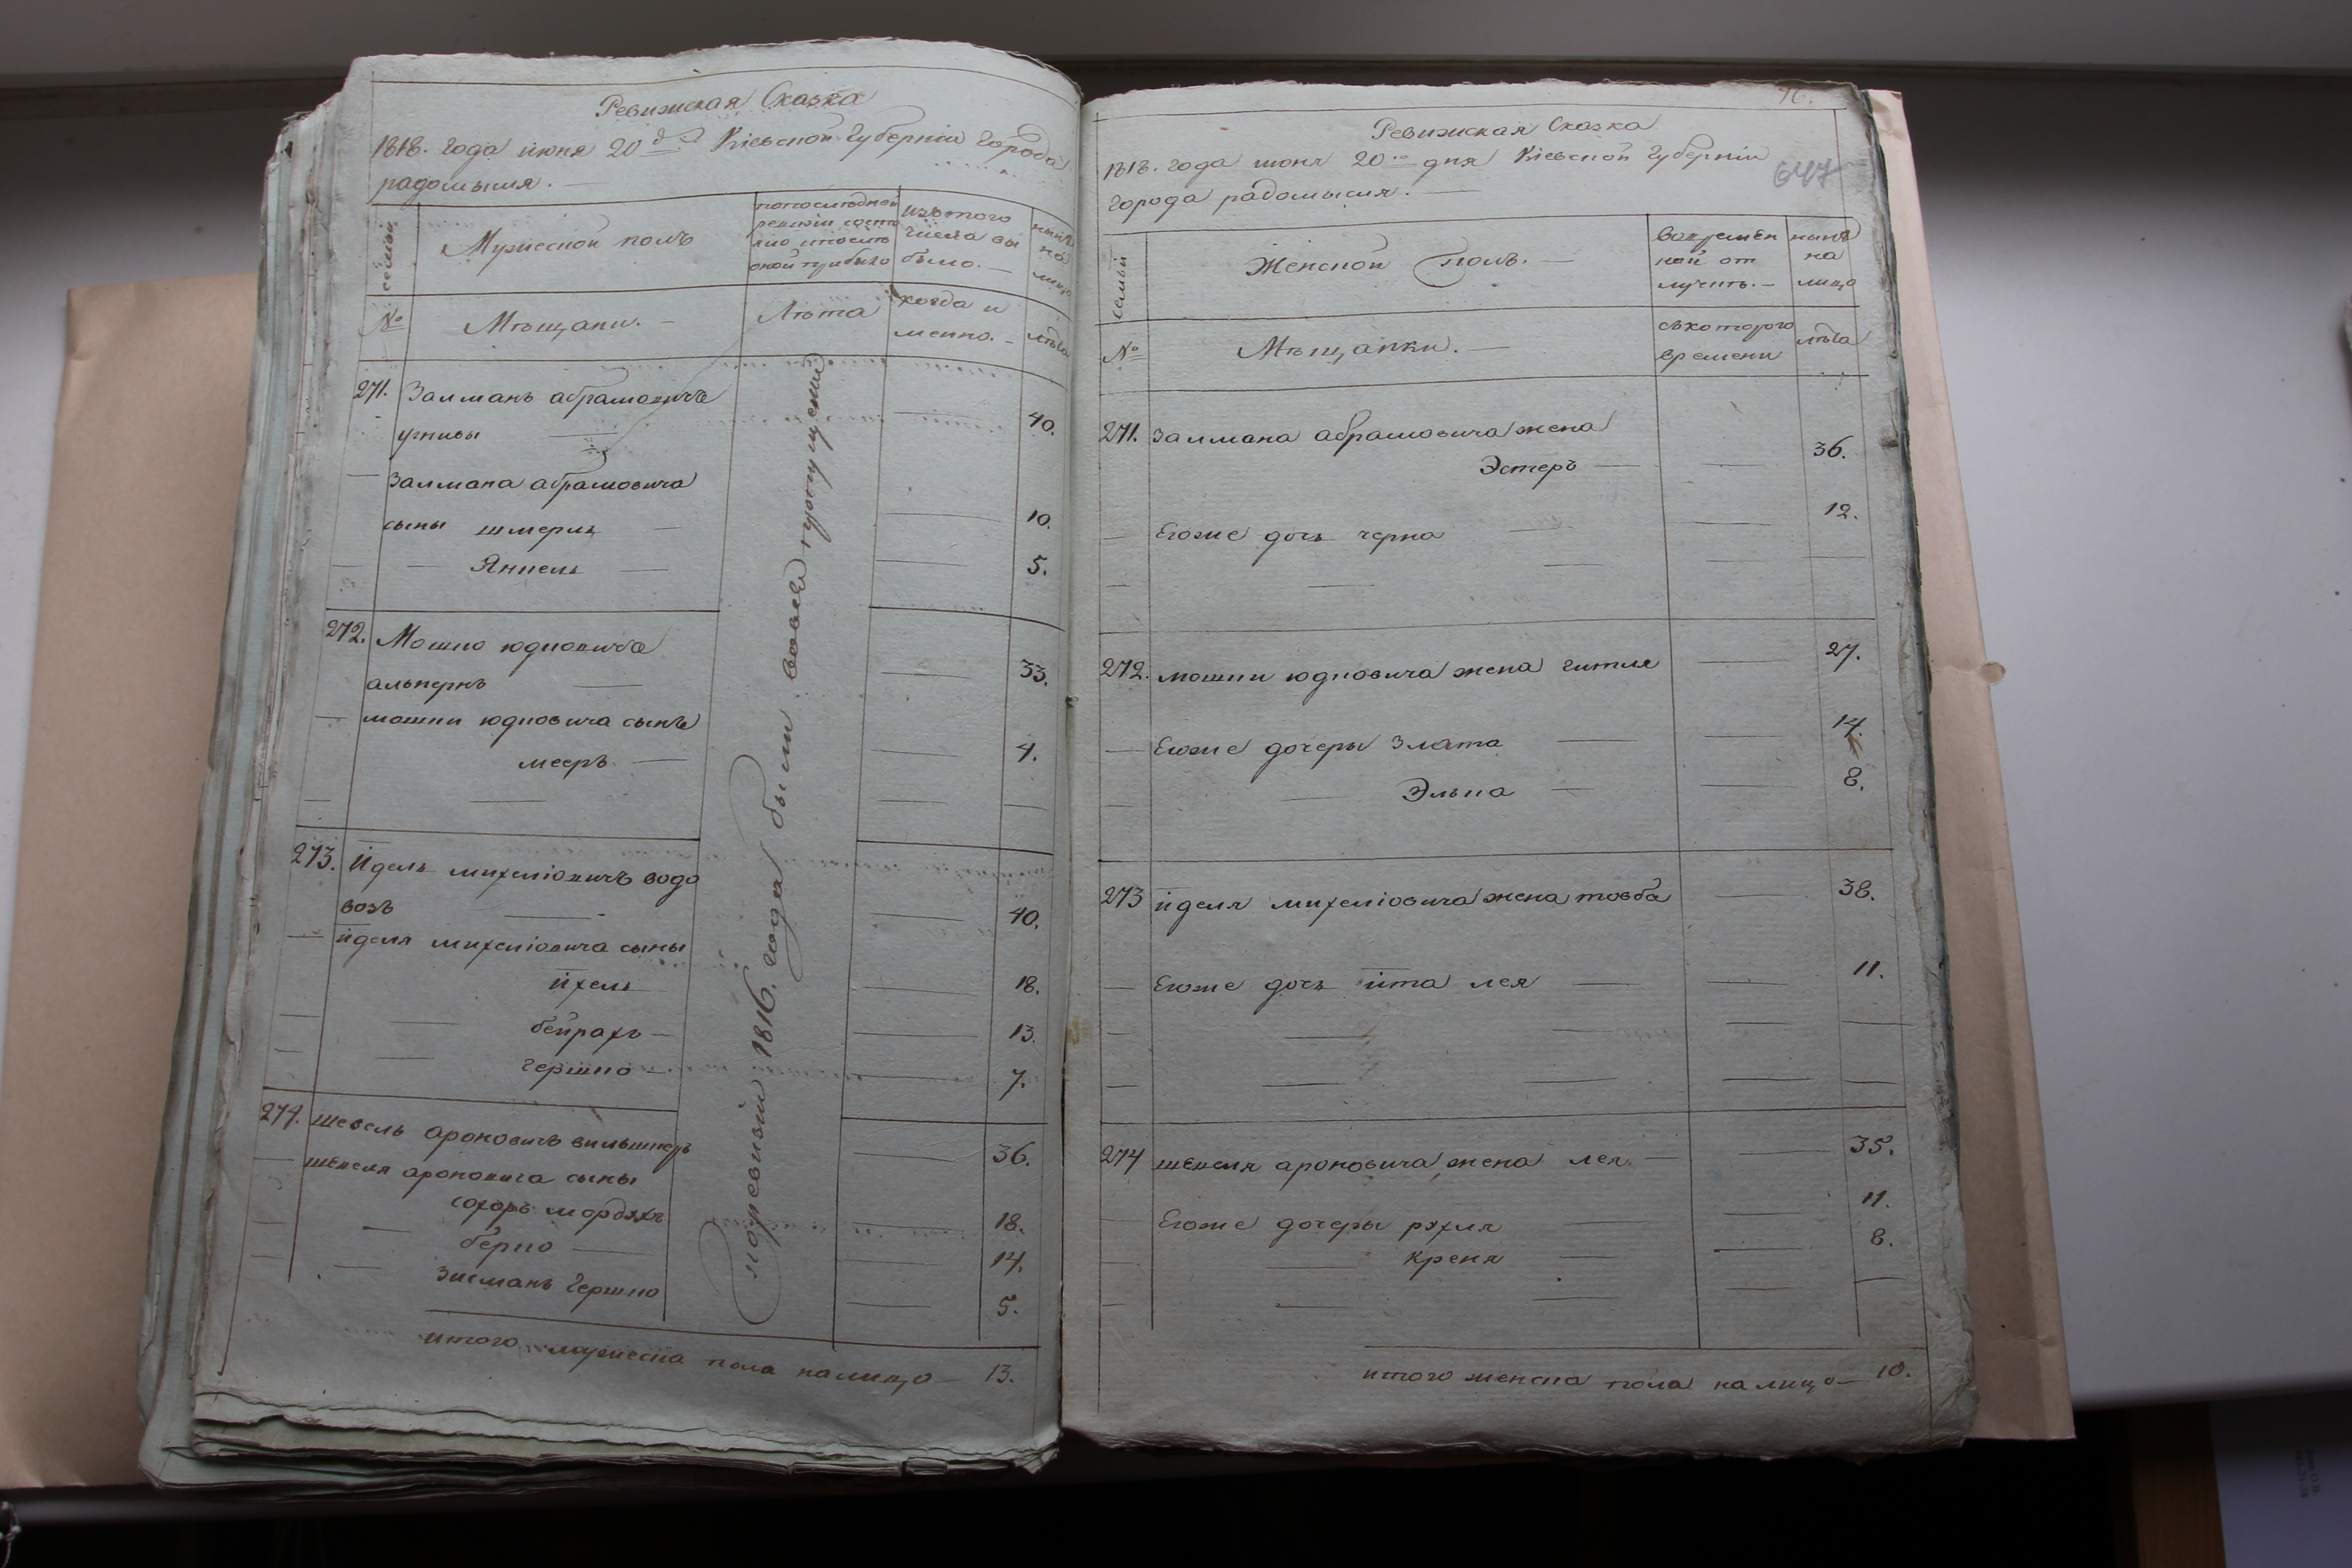 Ревижская Сказка
1818. года июня 20 д: Кіевской Губерніи Города
радомысля. —
семьи
Мужеской полъ
попоследней
ревизіи состо
яло ипослѣ
оной прибыло
изътого
числа вы
было. —
нынѣ
на
лицо
№
Мѣщани. —
Лѣта
когда и
менно. —
лѣта
271. Залманъ абрамовичъ
40.
— Залмана абрамовича
сыны шмерль — 10.
— — Янкель — 5.
272. Мошко юдковичъ
альпернъ — 33.
— мошки юдковича сынъ
мееръ — 4.
273. Идель михеліовичъ водо
возъ — 40.
— иделя михеліовича сыны
ихель 18.
— — бейрахъ — 13.
— — гершко — 7.
274. шевель ароновичъ вильшнеръ
36.
— шевеля ароновича сыны
мордхъ 18.
— — берко — 14.
— — зисманъ гершко 5.
поревизіи 1816. года были вовсе пропущени
итого мужеска пола налицо — 13.
76.
647
Ревижская Сказка
1818. года июня 20го дня Кіевской Губерніи
города радомысля. —
семьи
Женской полъ. —
вовремен
ной от
лучкѣ. —
нынѣ
на
лицо
№
Мѣщанки. —
съкоторого
времени
лѣта
271. Залмана абрамовича жена
Эстеръ — 36.
— Егоже дочь черна — 12.
272. мошки юдковича жена гитля — 27.
— Егоже дочеры злата — 14.
— — Элька — 8.
273 иделя михеліовича жена товба — 38.
— Егоже дочь ита лея — 11.
274 шевеля ароновича жена лея. — 35.
Егоже дочеры рухля — 11.
— — креня — 8.
итого женска пола на лицо — 10.